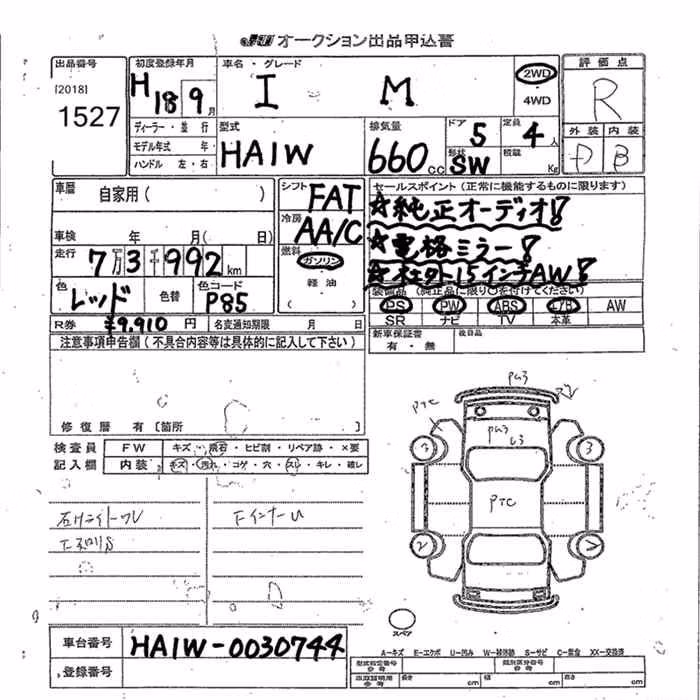 JU オークション出品申込書
出品番号 初度登録年月 車名・グレード 評価点
[2018] 1527
H18 9月 I M 2WD 4WD R
ディーラー・並行
モデル年式 年
ハンドル 左・右
型式 排気量 ドア 定員 外装 内装
HA1W 660cc 5 4人 D B
形状 SW 積載 Kg
車歴 自家用( )
シフト FAT
セールスポイント(正常に機能するものに限ります)
☆純正オーディオ!
車検 年 月( 日)
冷房 AA/C
☆電格ミラー!
走行 7万3千992km
燃料 ガソリン 軽油
☆社外15インチAW!
色 レッド 色替 色コード P85
装備品(純正品に限り○を付けてください)
PS PW ABS エアB AW
SR ナビ TV 本革
R券 ¥9,910円 名変通知期限 月 日
新車保証書 有・無 後日品
注意事項申告欄(不具合内容等は具体的に記入して下さい)
修復歴 有[箇所
検査員 FW キズ・飛石・ヒビ割・リペア跡・×要
記入欄 内装 キズ・汚れ・コゲ・穴・スレ・キレ・破レ
PTC
3 3
PTC
2
スペア
A-キズ E-エクボ U-凹み
車台番号 HA1W-0030744
登録番号
型式指定番号 参考 類別区分番号 参考
長さ cm cm cm